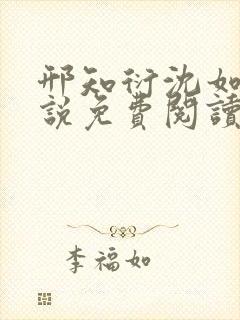 邢知衍沈如
說免費閱讀
李福如